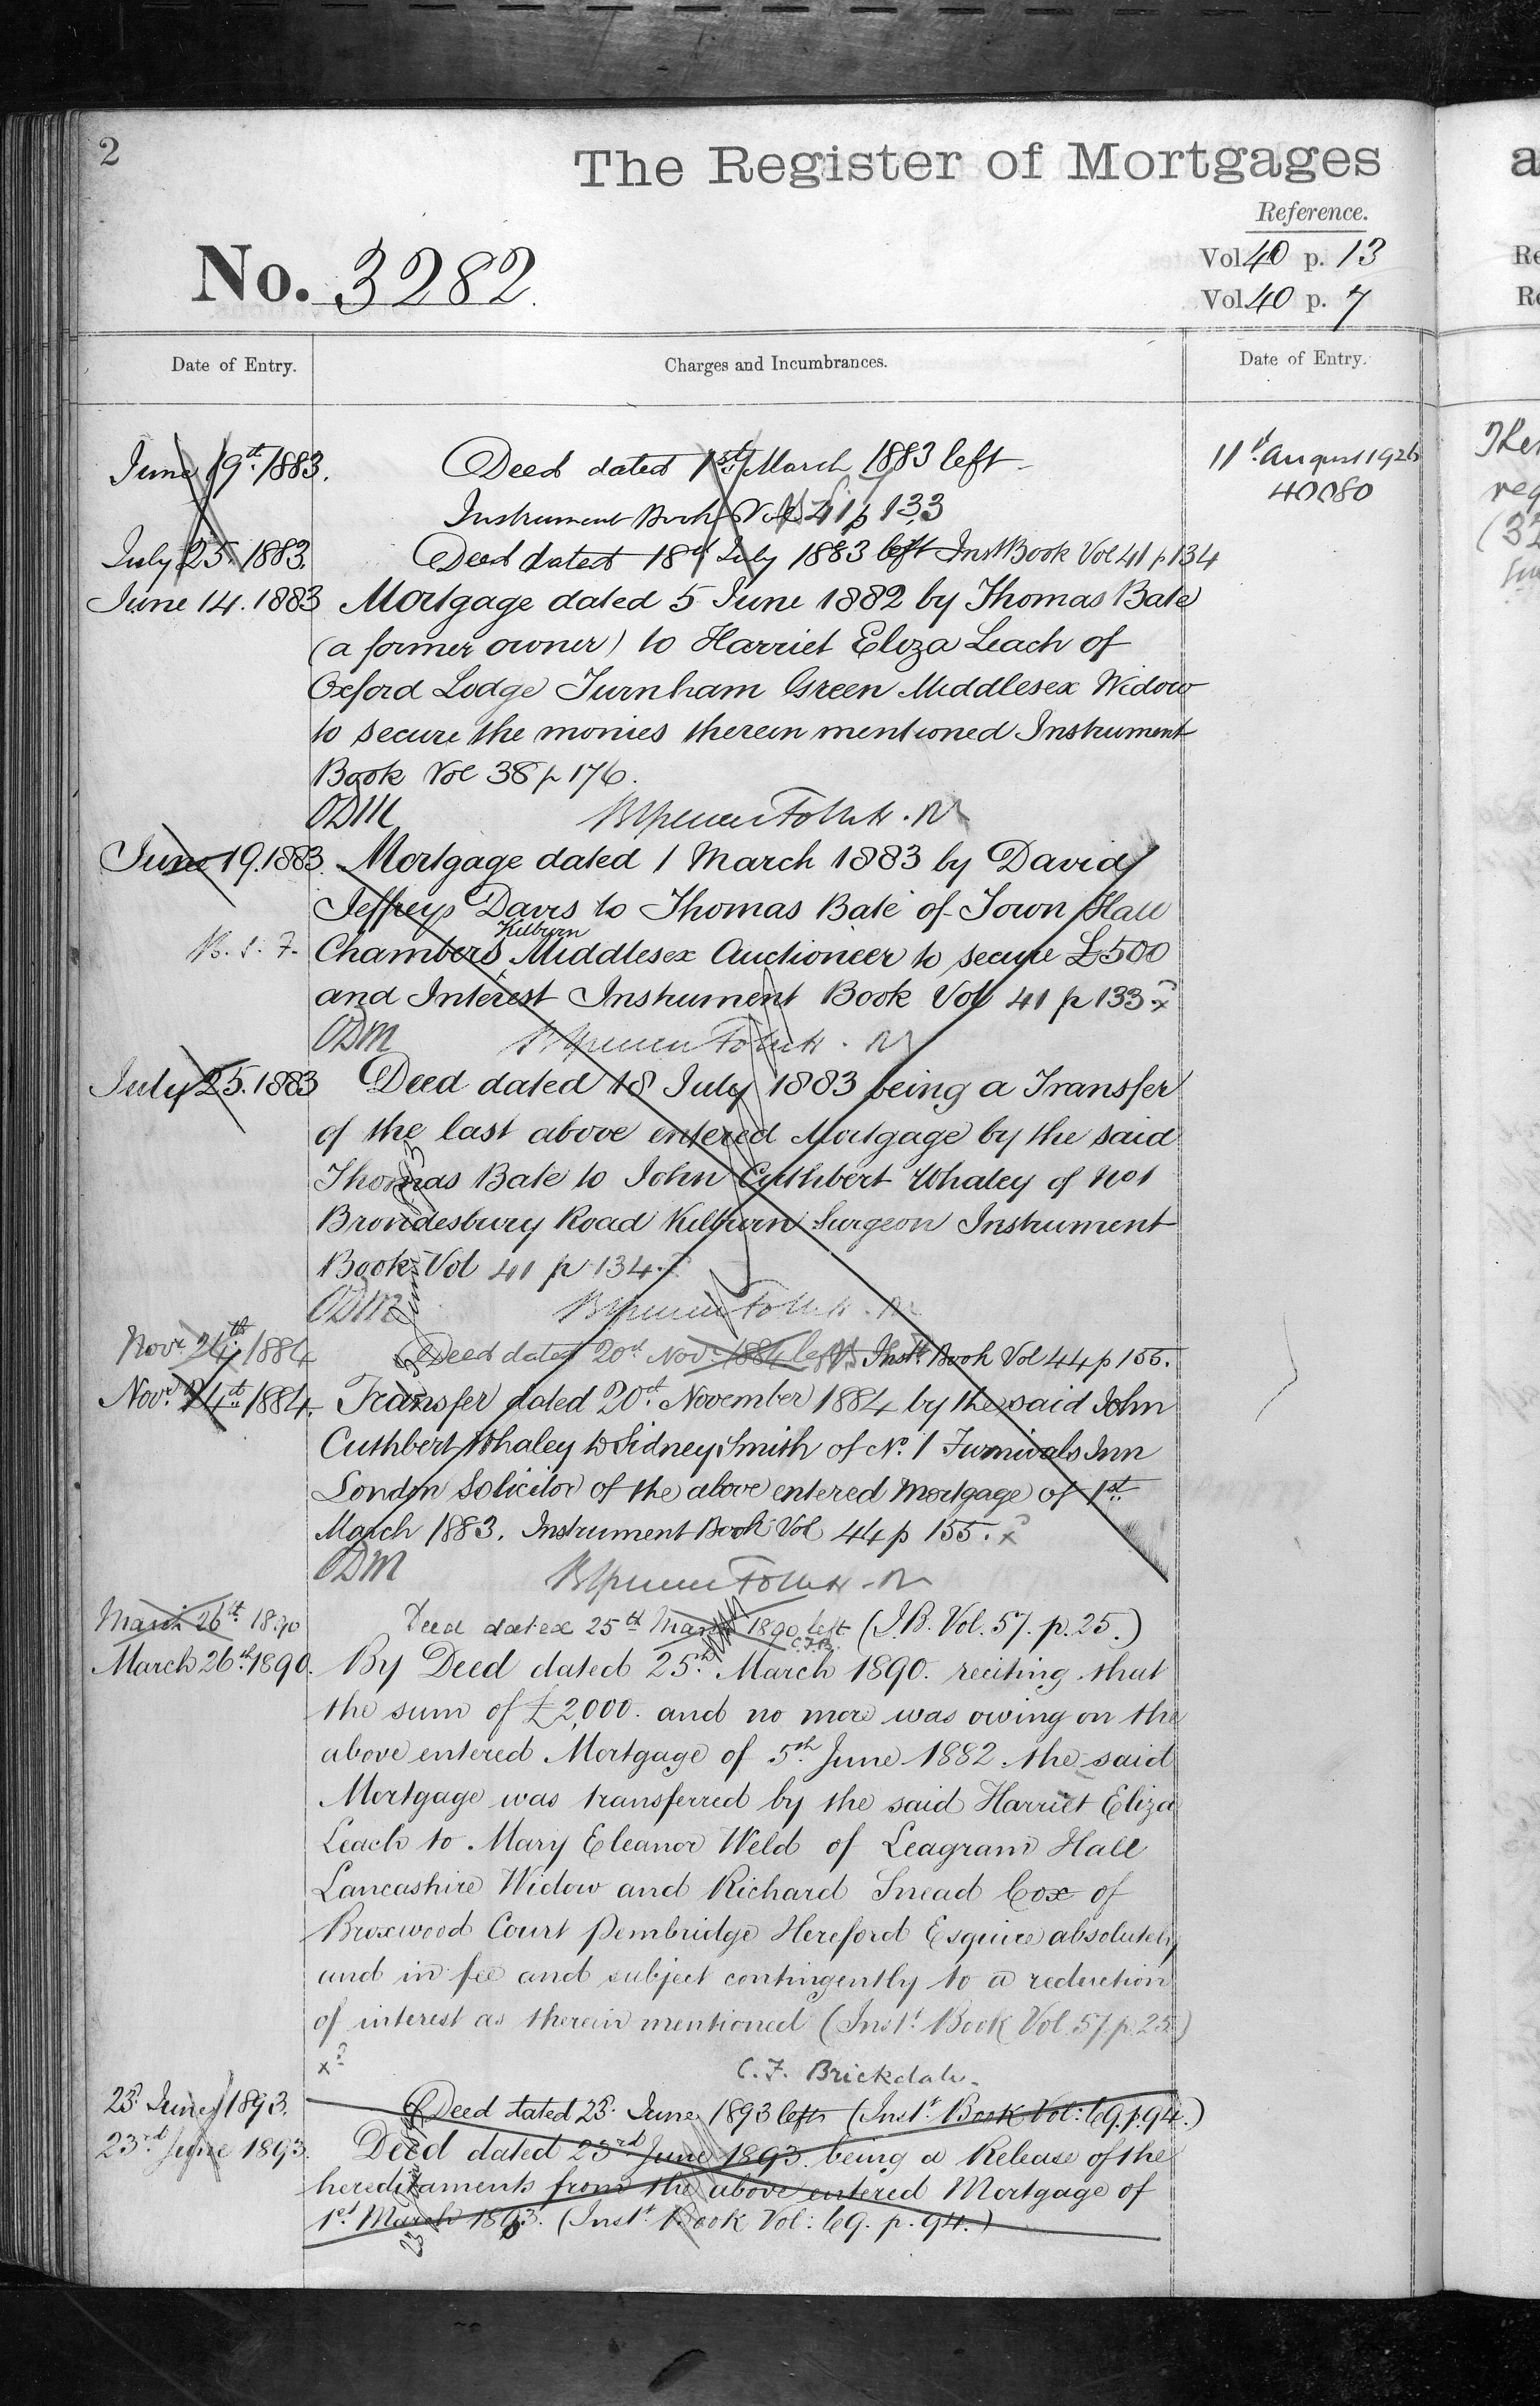 2
The Register of Mortgages
Reference.
No. 3282.
Vol. 40 p. 13
Vol. 40 p. 7
Date of Entry.
Charges and Incumbrances.
Date of Entry.
June 19th 1883. Deed dated 1st March 1883 left
Instrument Book Vol 41 p 133
July 25. 1883. Deed dated 18th July 1883 left Inst Book Vol 41 p 134
June 14. 1883 Mortgage dated 5 June 1882 by Thomas Bate
(a former owner) to Harriet Eliza Leach of
Oxford Lodge Turnham Green Middlesex Widow
to secure the monies therein mentioned Instrument
Book Vol 38 p 176.
ODM
June 19. 1883. Mortgage dated 1 March 1883 by David
Jeffreys Davis to Thomas Bate of Town Hall
Kilburn
Chambers Middlesex Auctioneer to secure £500
and Interest Instrument Book Vol 41 p 133
ODM
July 25. 1883 Deed dated 18 July 1883 being a Transfer
of the last above entered Mortgage by the said
Thomas Bate to John Cuthbert Whaley of No 1
Brondesbury Road Kilburn Surgeon Instrument
Book Vol 41 p 134.
ODM
Novr 24th 1884 Deed dated 20th Novr 1884 left Instt Book Vol 44 p 155.
Novr 24th 1884. Transfer dated 20th November 1884 by the said John
Cuthbert Whaley to Sidney Smith of No. 1 Furnivals Inn
London Solicitor of the above entered Mortgage of 1st
March 1883. Instrument Book Vol 44 p 155.
ODM
March 26th 1890 Deed dated 25th March 1890 left (I.B. Vol. 57. p. 25.)
March 26th 1890. By Deed dated 25th March 1890. reciting that
the sum of £2,000. and no more was owing on the
above entered Mortgage of 5th June 1882. the said
Mortgage was transferred by the said Harriet Eliza
Leach to Mary Eleanor Weld of Leagram Hall
Lancashire Widow and Richard Snead Cox of
Broxwood Court Pembridge Hereford Esquire absolutely
and in fee and subject contingently to a reduction
of interest as therein mentioned (Inst. Book Vol. 57. p. 25.)
C. F. Brickdale.
23d. June 1893. Deed dated 23d. June 1893 left (Inst. Book Vol: 69. p. 94.)
23rd June 1893. Deed dated 23rd June 1893. being a Release of the
hereditaments from the above entered Mortgage of
1st March 1883. (Inst. Book Vol: 69. p. 94.)
11th August 1926
40080